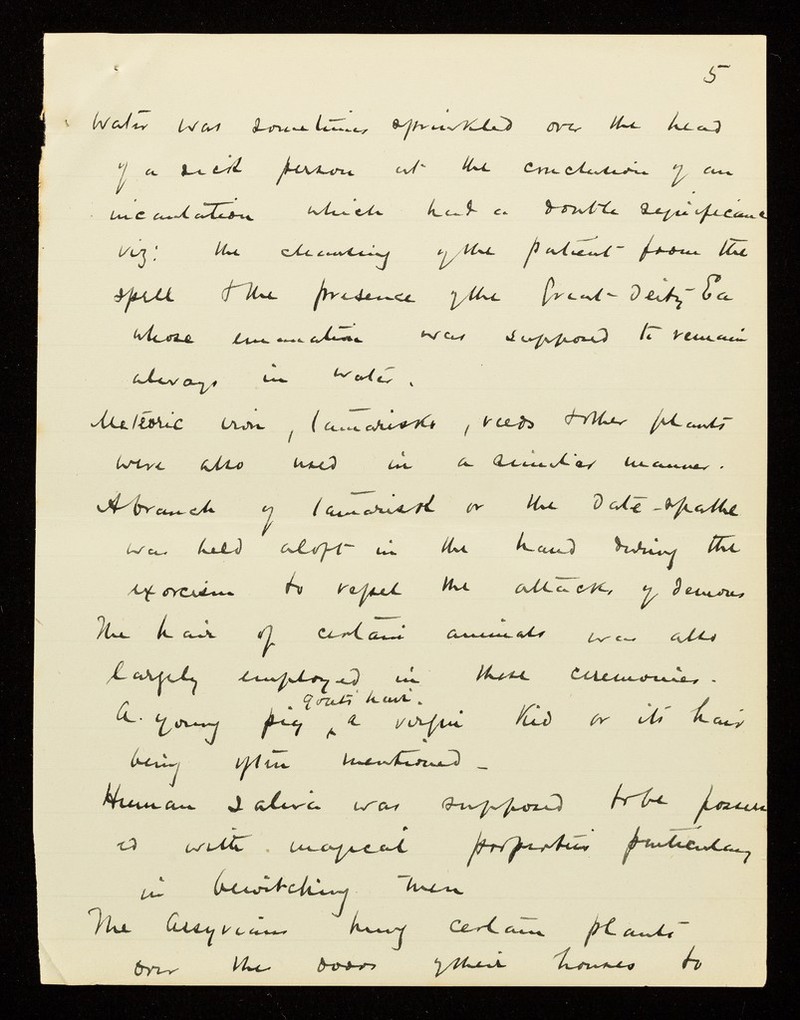 5
Water was sometimes sprinkled over the head
of a sick person at the conclusion of an
incantation which had a double significance
viz: the cleansing of the patient from the
spell & the presence of the Great Deity Ea
whose emanation was supposed to remain
always in water.
Meteoric iron, tamarisks, reeds & other plants
were also used in a similar manner.
A branch of tamarisk or the date-spathe
was held aloft in the hand during the
exorcism to repel the attacks of demons
The hair of certain animals was also
largely employed in these ceremonies.
goats hair.
A. young pig ^ a virgin kid or its hair
being often mentioned -
Human saliva was supposed to be possess
ed with magical properties particularly
in bewitching men
The Assyrians hung certain plants
over the doors of their houses to